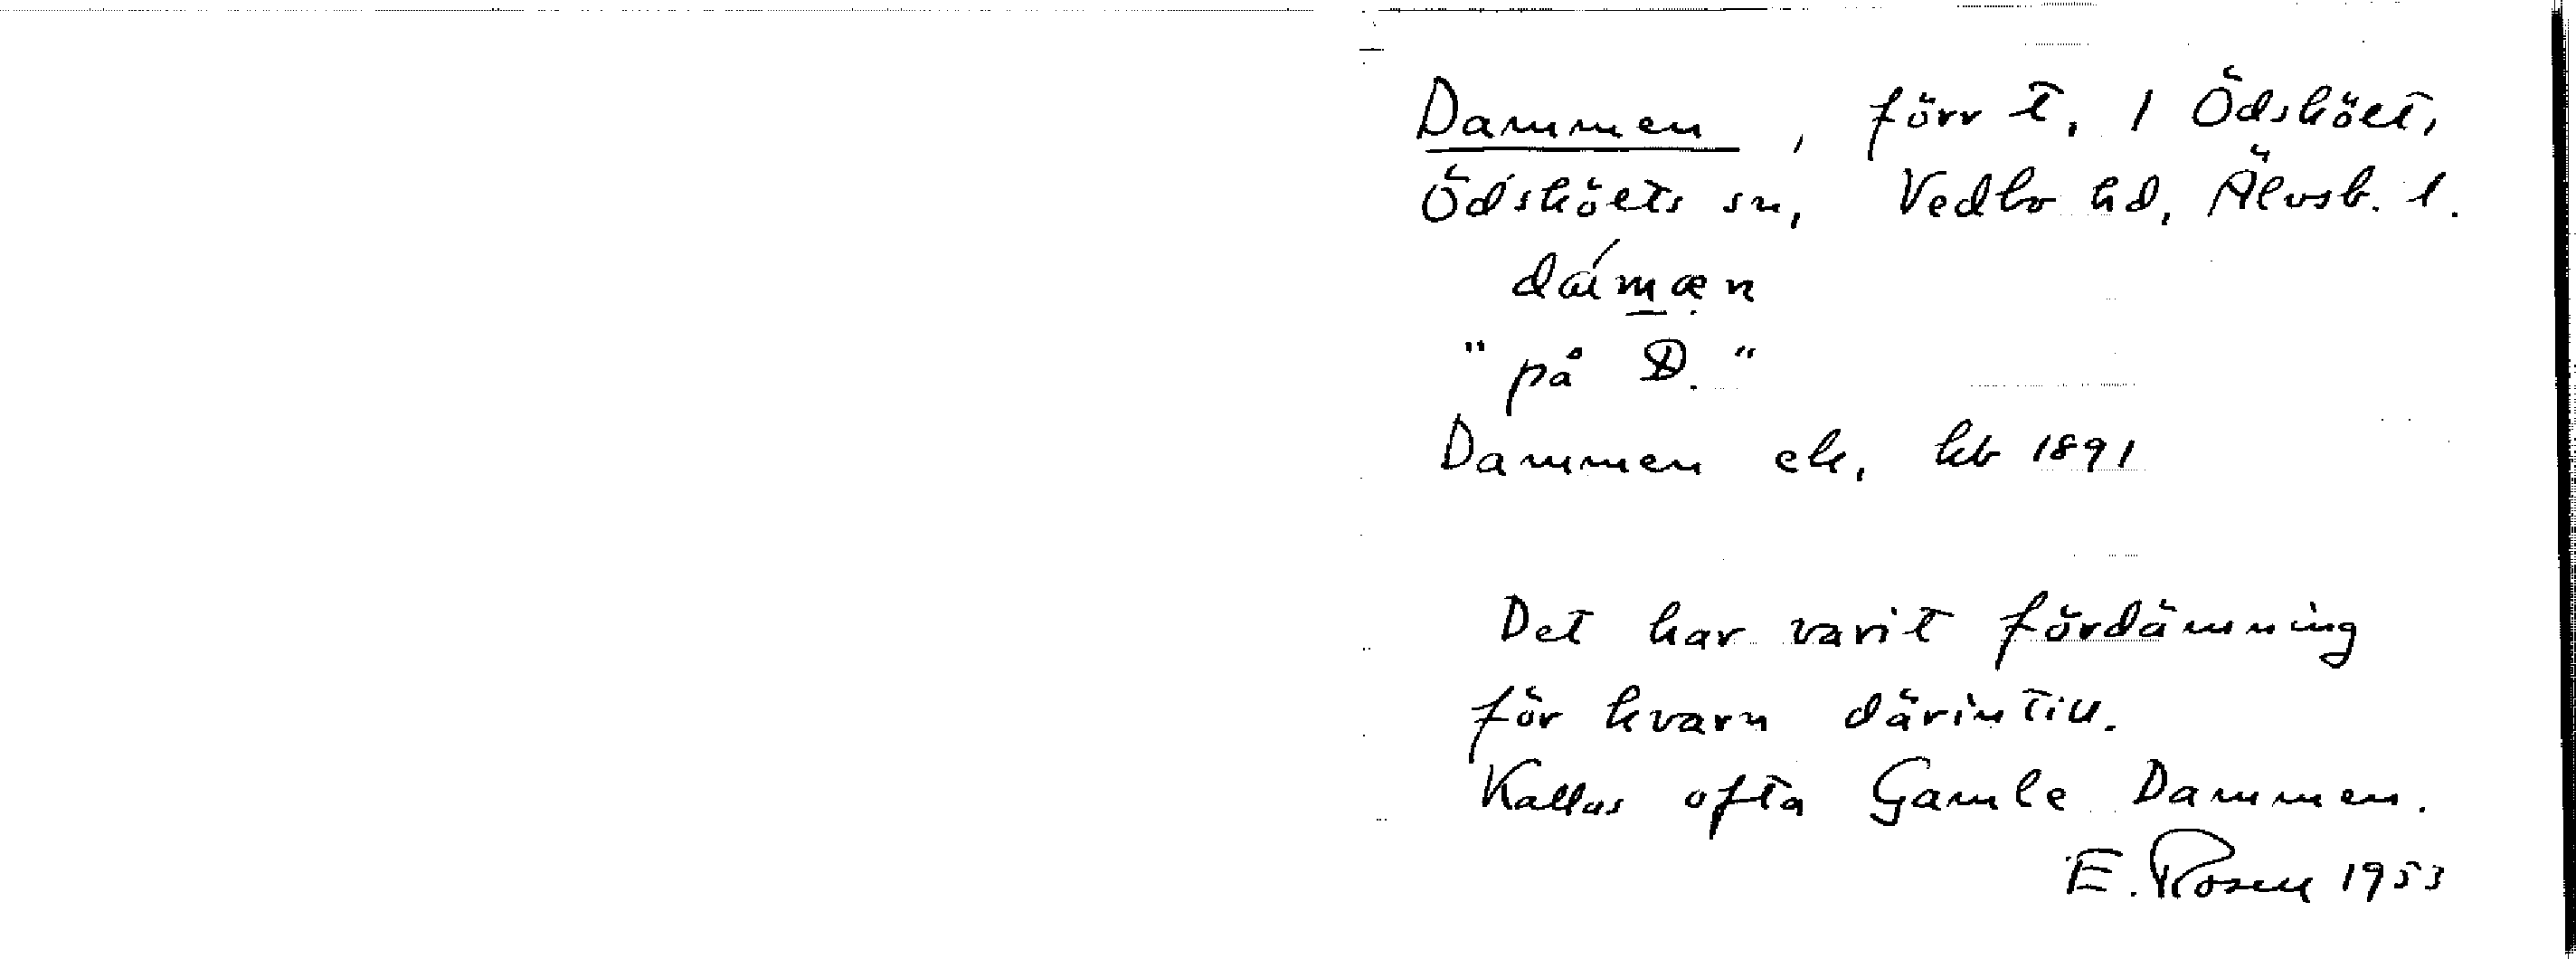 Dammen, förr t. 1 Ödsköelt,
Ödskölts sn, Vedbo hd, Älvsb. l.
dámæn
"på D."
Dammen ek. kb 1891
Det har varit fördämning
för kvarn därintill.
Kallas ofta Gamle Dammen.
E. Rosell 1953